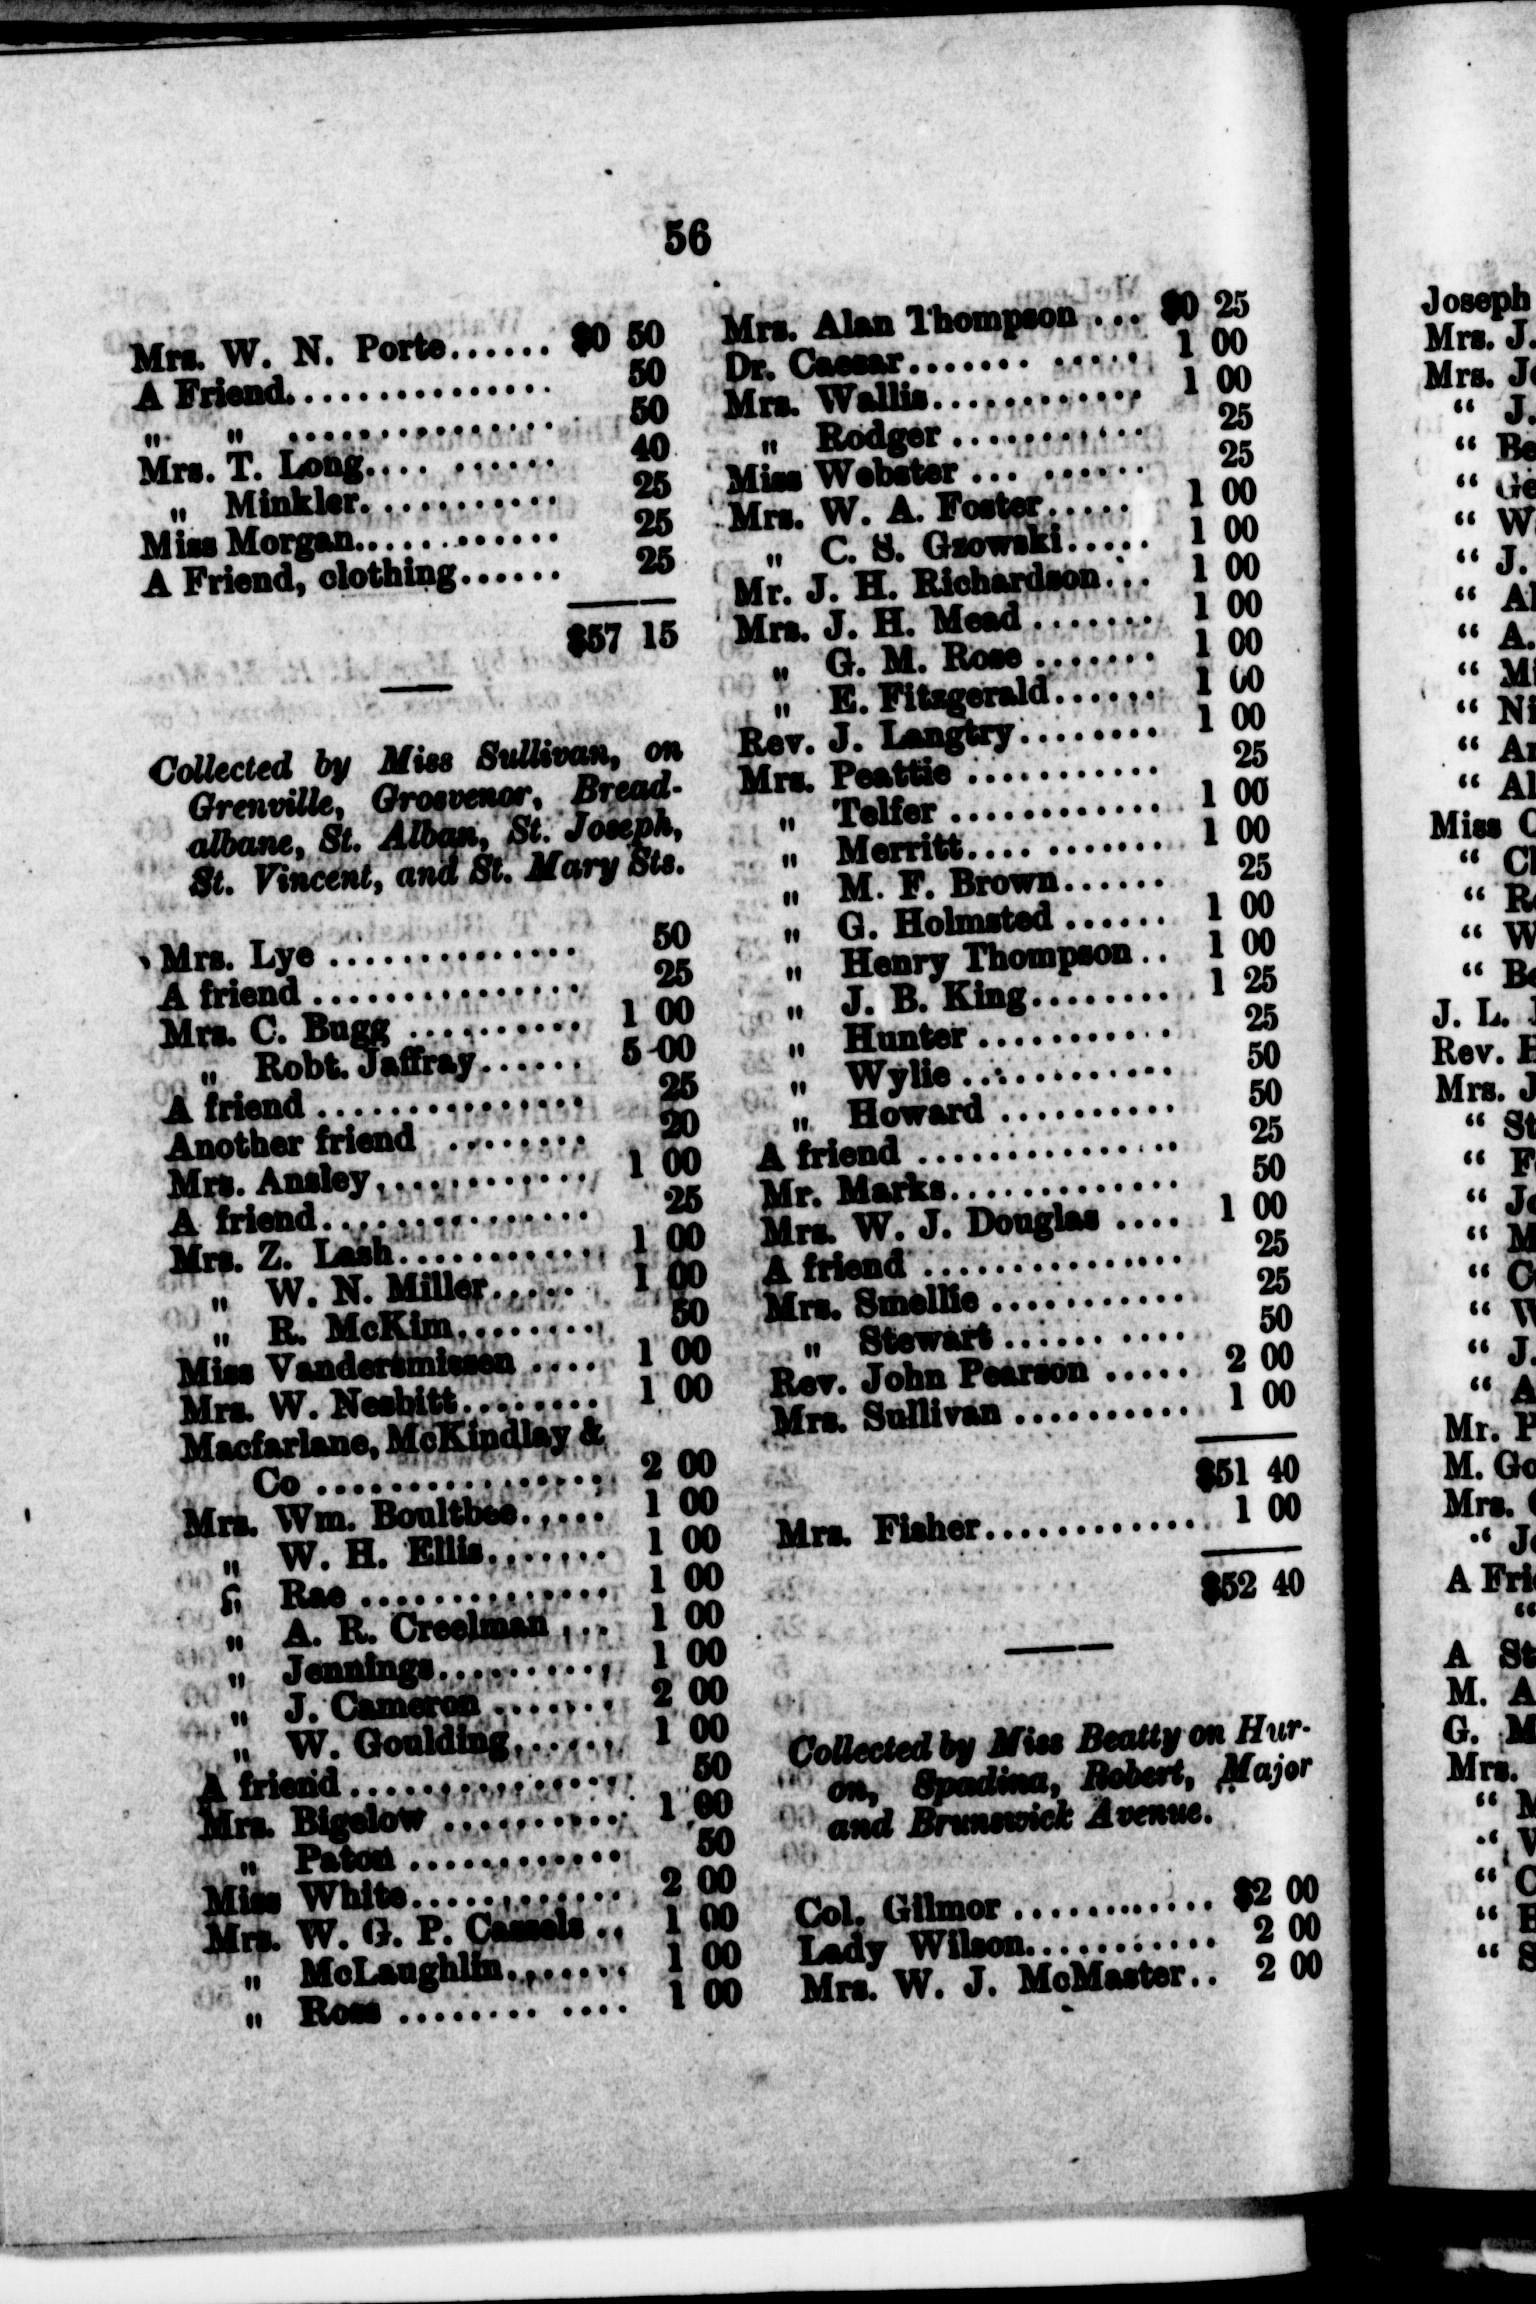 56
Mrs. W. N. Porte...... $0 50
A Friend............... 50
„ „ ............... 50
Mrs. T. Long.... ...... 40
„ Minkler........... 25
Miss Morgan............ 25
A Friend, clothing...... 25
$57 15
Collected by Miss Sullivan, on
Grenville, Grosvenor, Bread-
albane, St. Alban, St. Joseph,
St. Vincent, and St. Mary Sts.
Mrs. Lye .............. 50
A friend ............... 25
Mrs. C. Bugg .......... 1 00
„ Robt. Jaffray...... 5 00
A friend ............... 25
Another friend ........ 20
Mrs. Ansley............ 1 00
A friend............... 25
Mrs. Z. Lash........... 1 00
„ W. N. Miller..... 1 00
„ R. McKim........ 50
Miss Vandersmissen .... 1 00
Mrs. W. Nesbitt........ 1 00
Macfarlane, McKindlay &
Co ................ 2 00
Mrs. Wm. Boultbee..... 1 00
„ W. H. Ellis....... 1 00
„ Rae .............. 1 00
„ A. R. Creelman ... 1 00
„ Jennings.......... 1 00
„ J. Cameron ....... 2 00
„ W. Goulding...... 1 00
A friend................ 50
Mrs. Bigelow .......... 1 00
„ Paton ............ 50
Miss White............ 2 00
Mrs. W. G. P. Cassels .. 1 00
„ McLaughlin....... 1 00
„ Ross ........ .... 1 00
Mrs. Alan Thompson ... $0 25
Dr. Caesar....... ..... 1 00
Mrs. Wallis............ 1 00
„ Rodger ........... 25
Miss Webster ... ...... 25
Mrs. W. A. Foster..... 1 00
„ C. S. Gzowski..... 1 00
Mr. J. H. Richardson... 1 00
Mrs. J. H. Mead ....... 1 00
„ G. M. Rose ....... 1 00
„ E. Fitzgerald...... 1 00
Rev. J. Langtry........ 1 00
Mrs. Peattie ........... 25
„ Telfer ............ 1 00
„ Merritt.... ....... 1 00
„ M. F. Brown...... 25
„ G. Holmsted ...... 1 00
„ Henry Thompson.. 1 00
„ J. B. King........ 1 25
„ Hunter ........... 25
„ Wylie............ 50
„ Howard .......... 50
A friend ............... 25
Mr. Marks.............. 50
Mrs. W. J. Douglas .... 1 00
A friend ............... 25
Mrs. Smellie ........... 25
„ Stewart ...... .... 50
Rev. John Pearson ..... 2 00
Mrs. Sullivan .......... 1 00
$51 40
Mrs. Fisher............. 1 00
$52 40
Collected by Miss Beatty on Hur-
on, Spadina, Robert, Major
and Brunswick Avenue.
Col. Gilmor ............ $2 00
Lady Wilson........... 2 00
Mrs. W. J. McMaster.. 2 00
Joseph
Mrs. J.
Mrs.
“ J.
“
“
“
“ J.
“
“ A.
“
“
“
“
Miss
“
“
“
“
J. L.
Rev.
Mrs.
“
“
“
“
“
“
“ J.
“
Mr.
M.
Mrs.
“
A
“
A
M.
G.
Mrs.
“
“
“
“
“